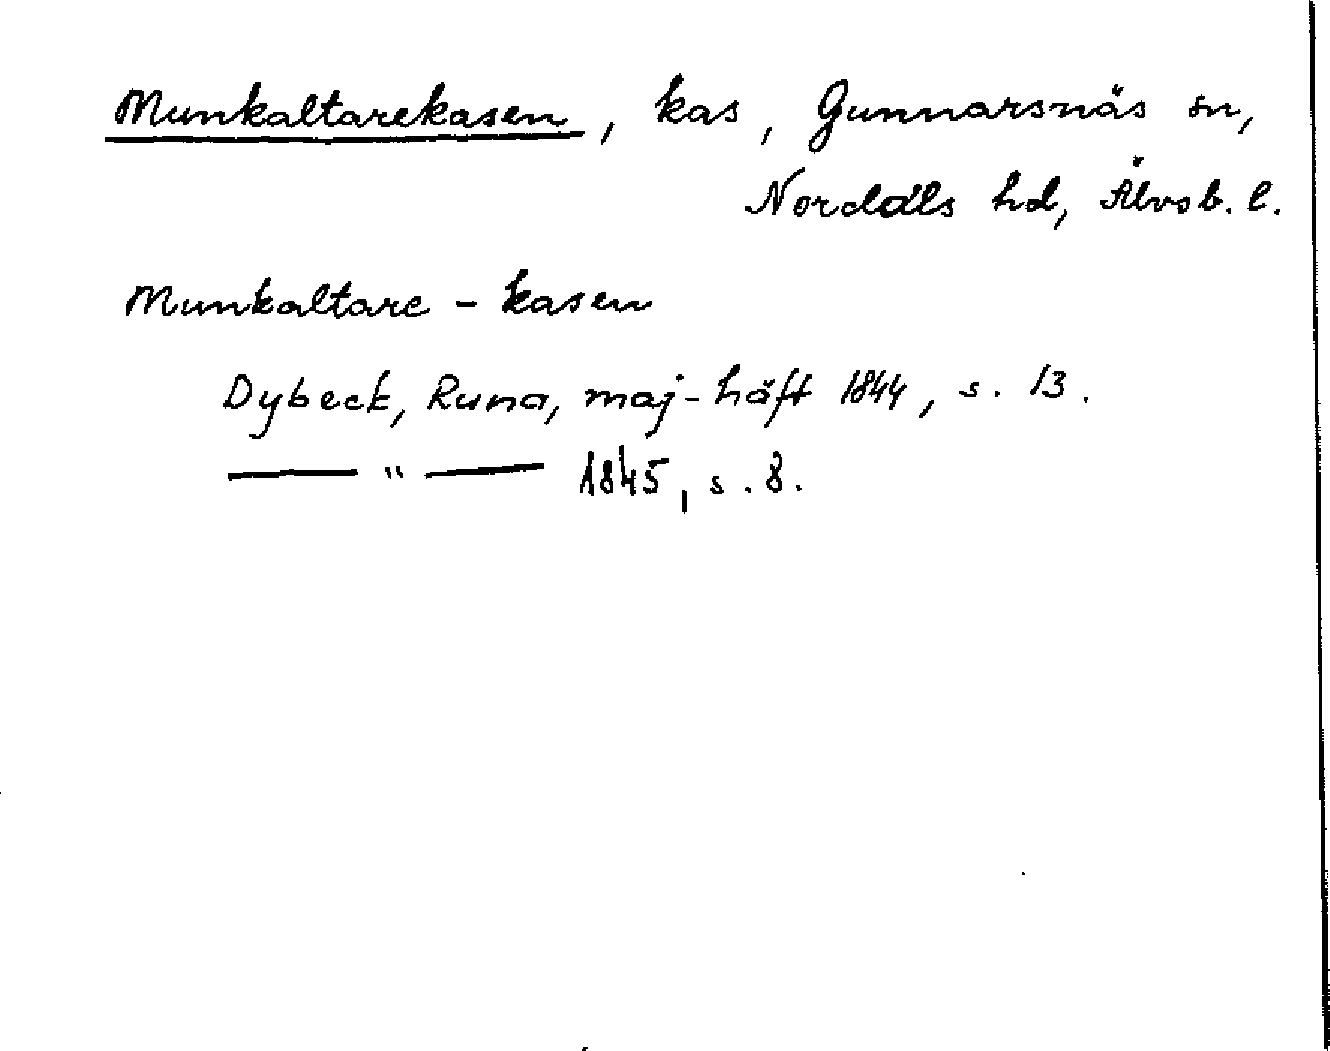 Munkaltarekasen, kas, Gunnarsnäs sn,
Norddals hd, Älvsb. l.
Munkaltare - kasen
Dybeck, Runa, maj-häft 1844, s. 13.
—— " —— 1845, s. 8.